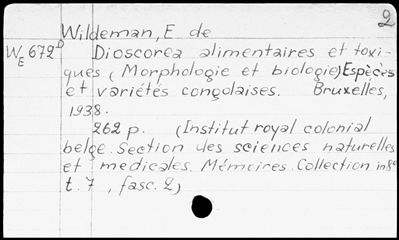 2
Wildeman, E de
WE 672D Dioscorea alimentaires et toxi-
ques (Morphologie et biologie) Espèces
et variétés congolaises. Bruxelles,
1938.
262 p. (Institut royal colonial
belge. Section des sciences naturelles
et medicales. Mémoires. Collection in 8º
t. 7, fasc. 2)